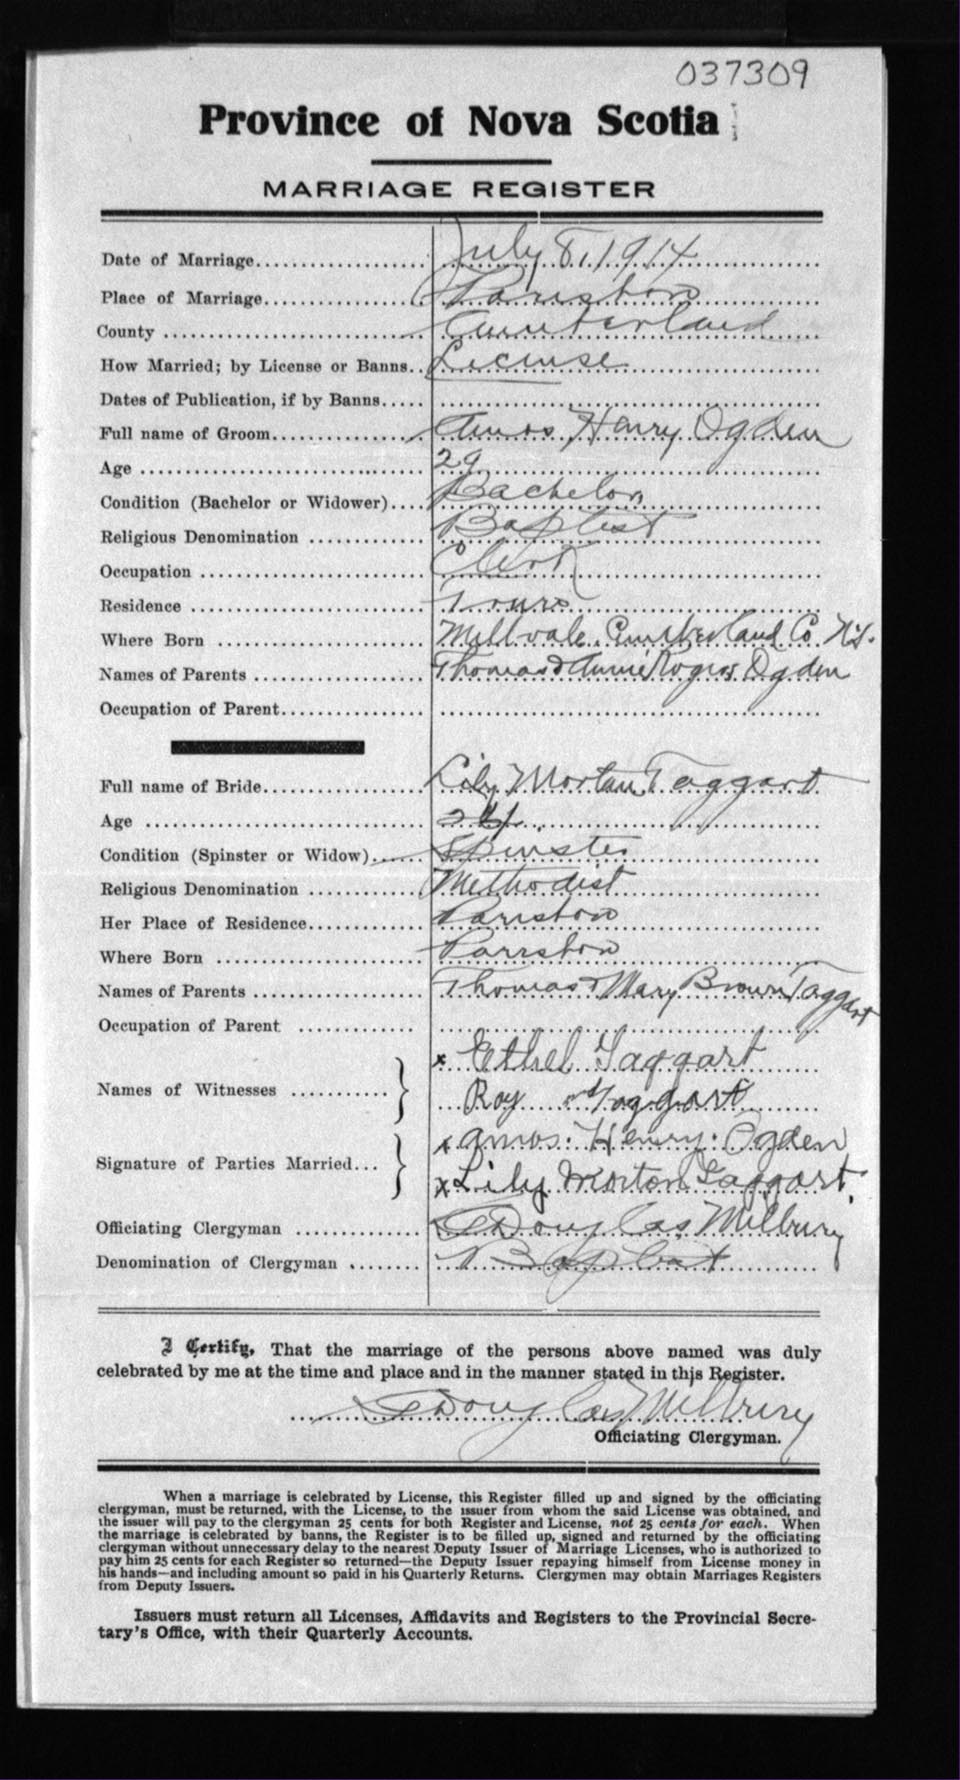 037309
Province of Nova Scotia
MARRIAGE REGISTER
Date of Marriage.................... July 8, 1914
Place of Marriage................... Parrsboro
County .............................. Cumberland
How Married; by License or Banns.. License
Dates of Publication, if by Banns.....
Full name of Groom.................. Amos Henry Ogden
Age .................................. 29
Condition (Bachelor or Widower).... Bachelor
Religious Denomination ............ Baptist
Occupation .......................... Clerk
Residence ........................... Truro
Where Born ........................ Millvale Cumberland Co N.S.
Names of Parents .................. Thomas & Annie Rogers Ogden
Occupation of Parent...............
Full name of Bride.................. Lily Morton Taggart
Age ..................................
Condition (Spinster or Widow)...... Spinster
Religious Denomination ............ Methodist
Her Place of Residence............. Parrsboro
Where Born ........................ Parrsboro
Names of Parents .................. Thomas & Mary Brown Taggart
Occupation of Parent .............
x Ethel Taggart
Names of Witnesses ........... }
Roy Taggart
x Amos. Henry. Ogden
Signature of Parties Married... }
x Lily Morton Taggart.
Officiating Clergyman ............. Douglas Milbury
Denomination of Clergyman ........ Baptist
I Certify, That the marriage of the persons above named was duly
celebrated by me at the time and place and in the manner stated in this Register.
Douglas Milbury
Officiating Clergyman.
When a marriage is celebrated by License, this Register filled up and signed by the officiating
clergyman, must be returned, with the License, to the issuer from whom the said License was obtained, and
the issuer will pay to the clergyman 25 cents for both Register and License, not 25 cents for each. When
the marriage is celebrated by banns, the Register is to be filled up, signed and returned by the officiating
clergyman without unnecessary delay to the nearest Deputy Issuer of Marriage Licenses, who is authorized to
pay him 25 cents for each Register so returned—the Deputy Issuer repaying himself from License money in
his hands—and including amount so paid in his Quarterly Returns. Clergymen may obtain Marriages Registers
from Deputy Issuers.
Issuers must return all Licenses, Affidavits and Registers to the Provincial Secre-
tary's Office, with their Quarterly Accounts.